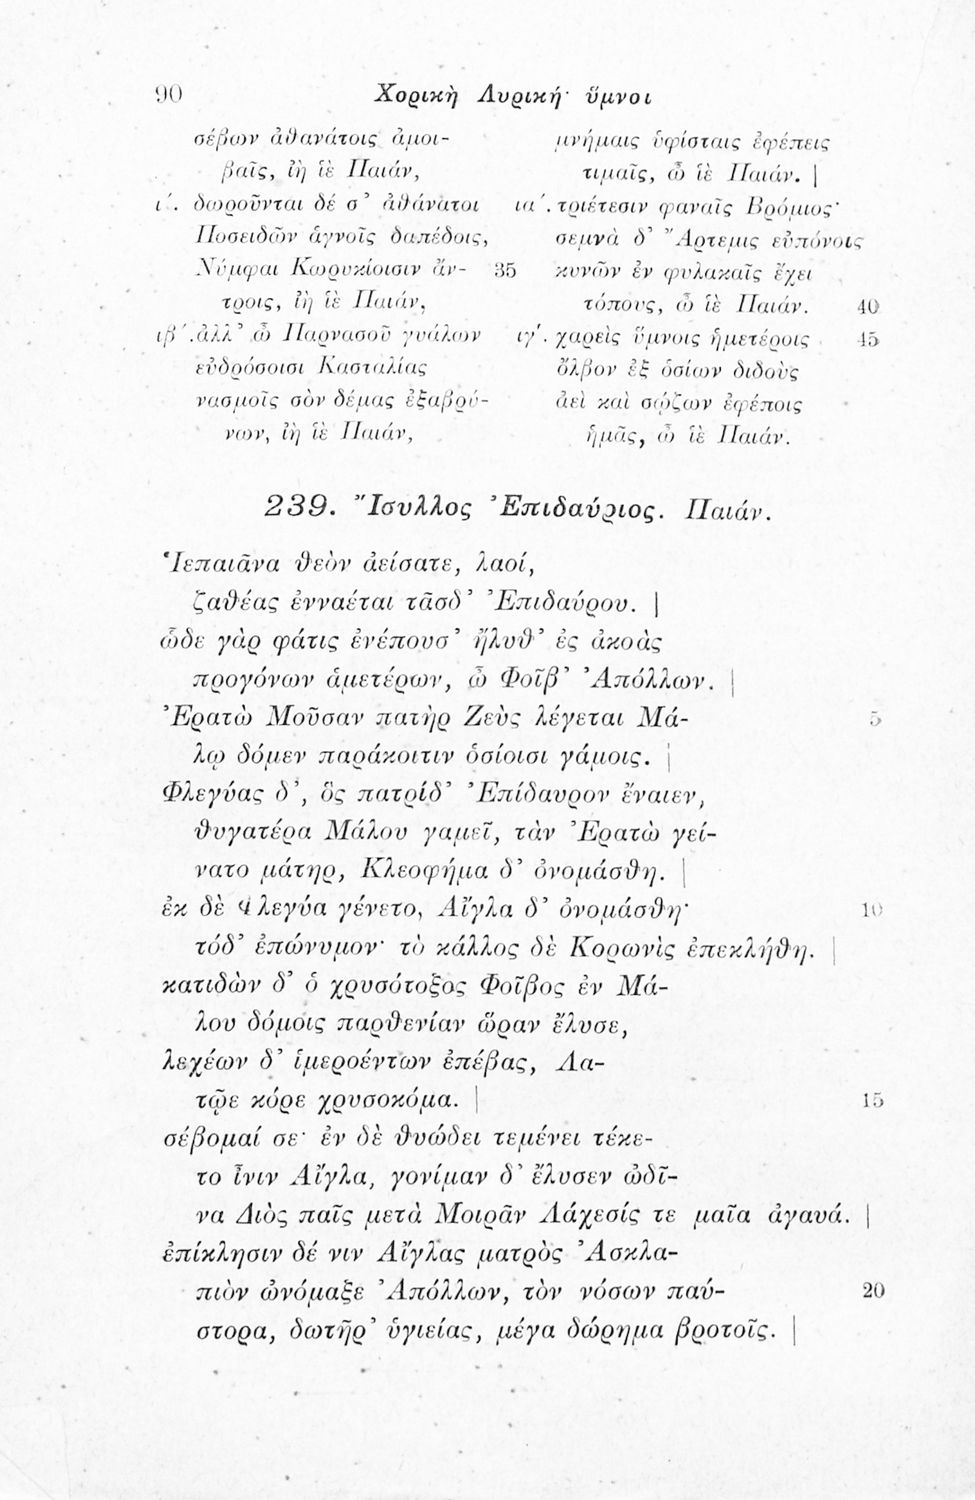 90 Χορικὴ Λυρική· ὕμνοι
σέβων ἀθανάτοις ἀμοι-
βαῖς, ἰὴ ἰὲ Παιάν,
ι΄. δωροῦνται δέ σ’ ἀθάνατοι
Ποσειδῶν ἁγνοῖς δαπέδοις,
Νύμφαι Κωρυκίοισιν ἄν- 35
τροις, ἰὴ ἰὲ Παιάν,
ιβ΄. ἀλλ’ ὦ Παρνασοῦ γυάλων
εὐδρόσοισι Κασταλίας
νασμοῖς σὸν δέμας ἐξαβρύ-
νων, ἰὴ ἰὲ Παιάν,
μνήμαις ὑφίσταις ἐφέπεις
τιμαῖς, ὦ ἰὲ Παιάν. |
ια΄. τριέτεσιν φαναῖς Βρόμιος·
σεμνὰ δ’ Ἄρτεμις εὐπόνοις
κυνῶν ἐν φυλακαῖς ἔχει
τόπους, ὦ ἰὲ Παιάν. 40
ιγ΄. χαρεὶς ὕμνοις ἡμετέροις 45
ὄλβον ἐξ ὁσίων διδοὺς
ἀεὶ καὶ σῴζων ἐφέποις
ἡμᾶς, ὦ ἰὲ Παιάν.
239. Ἴσυλλος Ἐπιδαύριος. Παιάν.
Ἱεπαιᾶνα θεὸν ἀείσατε, λαοί,
ζαθέας ἐνναέται τᾶσδ’ Ἐπιδαύρου. |
ὧδε γὰρ φάτις ἐνέπουσ’ ἤλυθ’ ἐς ἀκοὰς
προγόνων ἁμετέρων, ὦ Φοῖβ’ Ἀπόλλων. |
Ἐρατὼ Μοῦσαν πατὴρ Ζεὺς λέγεται Μά- 5
λῳ δόμεν παράκοιτιν ὁσίοισι γάμοις. |
Φλεγύας δ’, ὃς πατρίδ’ Ἐπίδαυρον ἔναιεν,
θυγατέρα Μάλου γαμεῖ, τὰν Ἐρατὼ γεί-
νατο μάτηρ, Κλεοφήμα δ’ ὀνομάσθη. |
ἐκ δὲ Φλεγύα γένετο, Αἴγλα δ’ ὀνομάσθη· 10
τόδ’ ἐπώνυμον· τὸ κάλλος δὲ Κορωνὶς ἐπεκλήθη. |
κατιδὼν δ’ ὁ χρυσότοξος Φοῖβος ἐν Μά-
λου δόμοις παρθενίαν ὥραν ἔλυσε,
λεχέων δ’ ἱμεροέντων ἐπέβας, Λα-
τῷε κόρε χρυσοκόμα. | 15
σέβομαί σε· ἐν δὲ θυώδει τεμένει τέκε-
το ἶνιν Αἴγλα, γονίμαν δ’ ἔλυσεν ὠδῖ-
να Διὸς παῖς μετὰ Μοιρᾶν Λάχεσίς τε μαῖα ἀγαυά. |
ἐπίκλησιν δέ νιν Αἴγλας ματρὸς Ἀσκλα-
πιὸν ὠνόμαξε Ἀπόλλων, τὸν νόσων παύ- 20
στορα, δωτῆρ’ ὑγιείας, μέγα δώρημα βροτοῖς. |